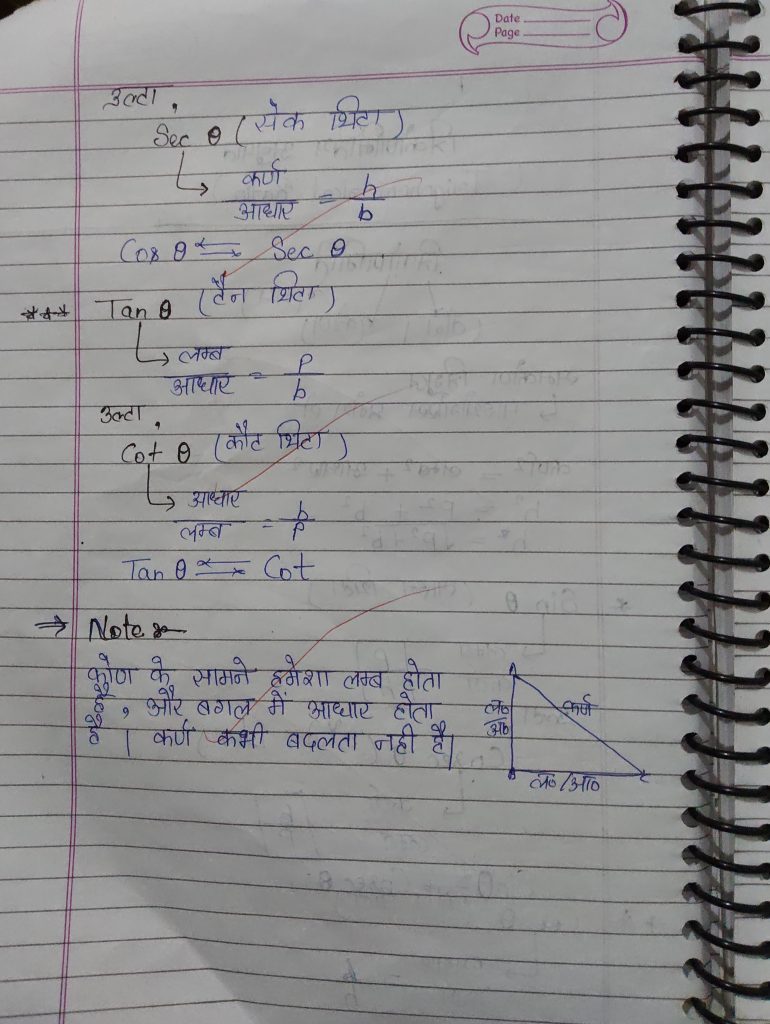 Date
Page
उल्टा,
Sec θ (सेक थिटा)
कर्ण / आधार = h / b
Cos θ ⇌ Sec θ
*** Tan θ (टैन थिटा)
लम्ब / आधार = P / b
उल्टा,
Cot θ (कौट थिटा)
आधार / लम्ब = b / P
Tan θ ⇌ Cot
⇒ Note :-
कोण के सामने हमेशा लम्ब होता
है, और बगल में आधार होता
है। कर्ण कभी बदलता नही है।
ल० / आ०
कर्ण
ल०/आ०